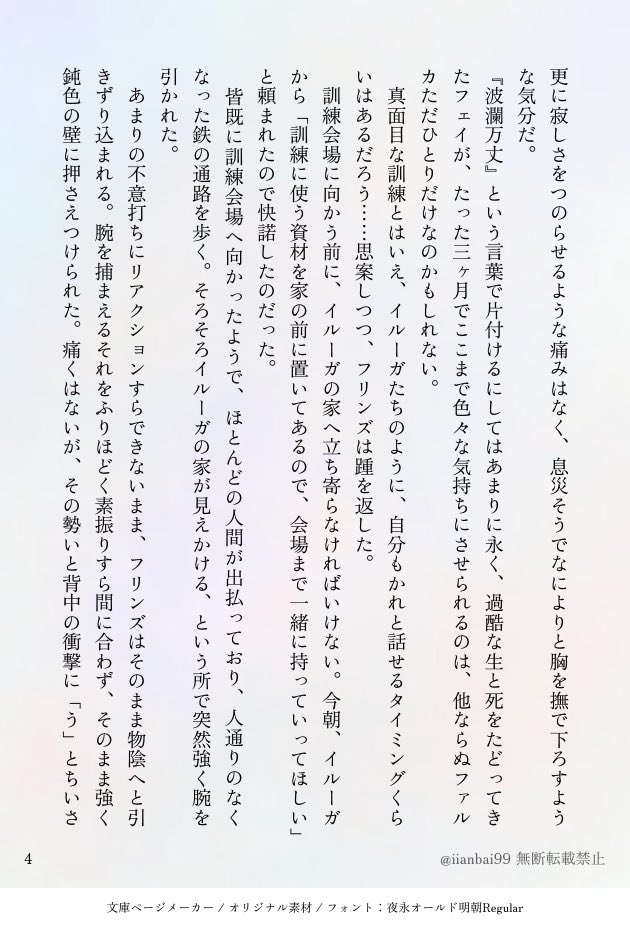 更に寂しさをつのらせるような痛みはなく、息災そうでなによりと胸を撫で下ろすよう
な気分だ。
『波瀾万丈』という言葉で片付けるにしてはあまりに永く、過酷な生と死をたどってき
たフェイが、たった三ヶ月でここまで色々な気持ちにさせられるのは、他ならぬファル
カただひとりだけなのかもしれない。
真面目な訓練とはいえ、イルーガたちのように、自分もかれと話せるタイミングくら
いはあるだろう……思案しつつ、フリンズは踵を返した。
訓練会場に向かう前に、イルーガの家へ立ち寄らなければいけない。今朝、イルーガ
から「訓練に使う資材を家の前に置いてあるので、会場まで一緒に持っていってほしい」
と頼まれたので快諾したのだった。
皆既に訓練会場へ向かったようで、ほとんどの人間が出払っており、人通りのなく
なった鉄の通路を歩く。そろそろイルーガの家が見えかける、という所で突然強く腕を
引かれた。
あまりの不意打ちにリアクションすらできないまま、フリンズはそのまま物陰へと引
きずり込まれる。腕を捕まえるそれをふりほどく素振りすら間に合わず、そのまま強く
鈍色の壁に押さえつけられた。痛くはないが、その勢いと背中の衝撃に「う」とちいさ
4
@iianbai99 無断転載禁止
文庫ページメーカー / オリジナル素材 / フォント：夜永オールド明朝Regular